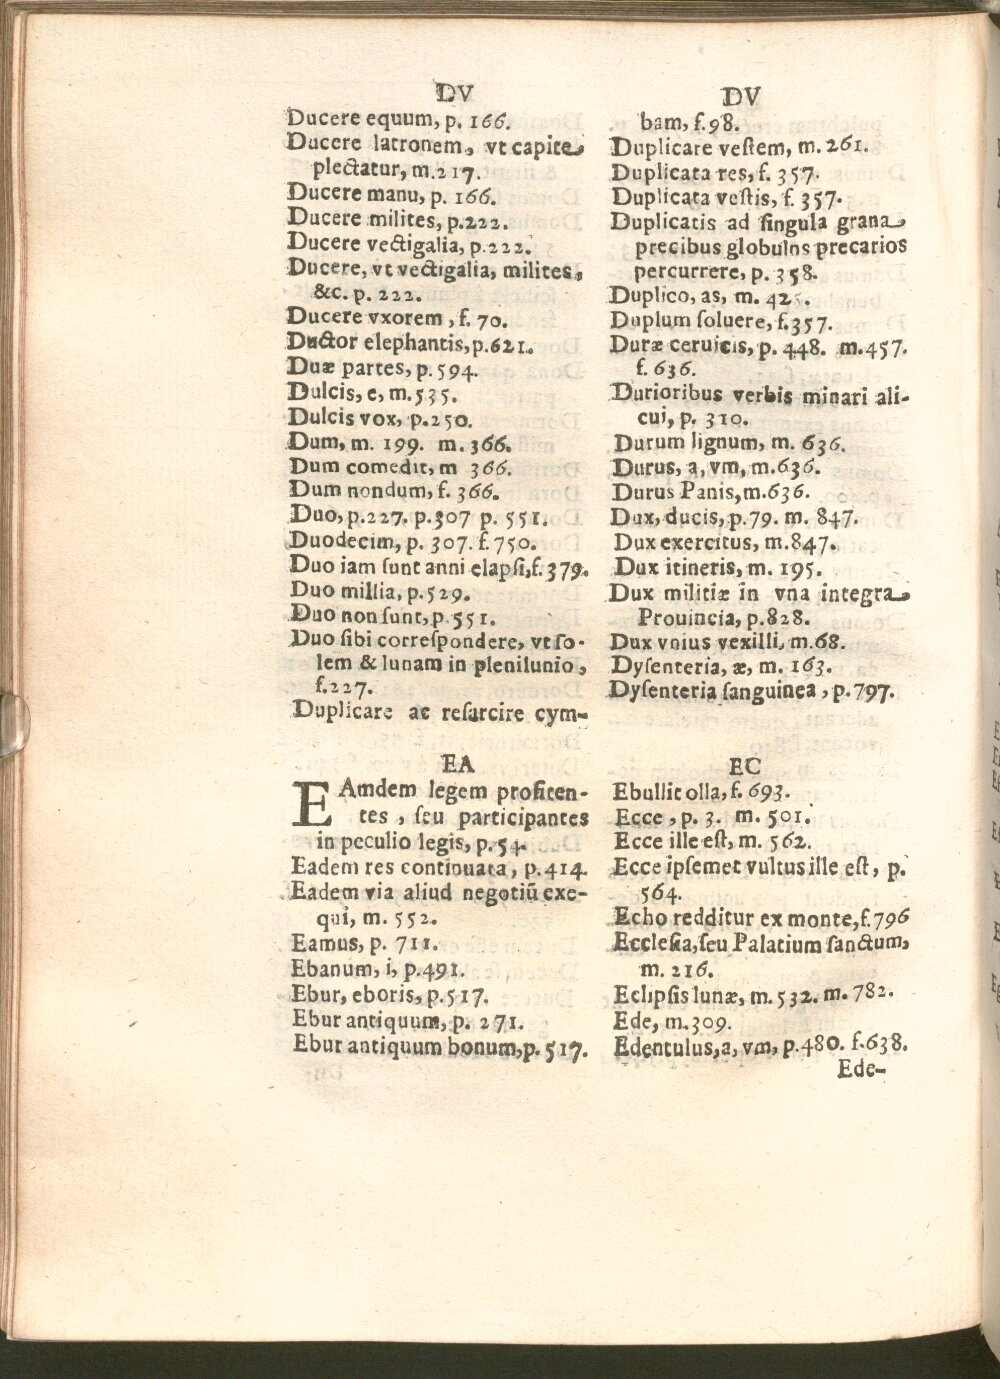 DV
Ducere equum, p. 166.
Ducere latronem, vt capite
plectatur, m.217.
Ducere manu, p. 166.
Ducere milites, p.222.
Ducere vectigalia, p.222.
Ducere, vt vectigalia, milites,
&c. p. 222.
Ducere vxorem, f. 70.
Ductor elephantis, p.621.
Duæ partes, p.594.
Dulcis, e, m.535.
Dulcis vox, p.250.
Dum, m. 199. m. 366.
Dum comedit, m 366.
Dum nondum, f. 366.
Duo, p.227. p.307 p. 551.
Duodecim, p. 307. f.750.
Duo iam ſunt anni elapſi, f.379.
Duo millia, p.529.
Duo non ſunt, p. 551.
Duo ſibi correſpondere, vt ſo-
lem & lunam in plenilunio,
f.227.
Duplicare ac reſarcire cym-
DV
bam, f.98.
Duplicare veſtem, m. 261.
Duplicata res, f. 357.
Duplicata veſtis, f. 357.
Duplicatis ad ſingula grana
precibus globulos precarios
percurrere, p. 358.
Duplico, as, m. 425.
Duplum ſoluere, f.357.
Duræ ceruicis, p. 448. m.457.
f. 636.
Durioribus verbis minari ali-
cui, p. 310.
Durum lignum, m. 636.
Durus, a, vm, m.636.
Durus Panis, m.636.
Dux, ducis, p.79. m. 847.
Dux exercitus, m.847.
Dux itineris, m. 195.
Dux militiæ in vna integra
Prouincia, p.828.
Dux vnius vexilli, m.68.
Dyſenteria, æ, m. 163.
Dyſenteria ſanguinea, p.797.
EA
EAmdem legem profiten-
tes, ſeu participantes
in peculio legis, p.54.
Eadem res continuata, p.414.
Eadem via aliud negotiū exe-
qui, m. 552.
Eamus, p. 711.
Ebanum, i, p.491.
Ebur, eboris, p.517.
Ebur antiquum, p. 271.
Ebur antiquum bonum, p. 517.
EC
Ebullit olla, f. 693.
Ecce, p. 3. m. 501.
Ecce ille eſt, m. 562.
Ecce ipſemet vultus ille eſt, p.
564.
Echo redditur ex monte, f.796
Eccleſia, ſeu Palatium ſanctum,
m. 216.
Eclipſis lunæ, m.532. m.782.
Ede, m.309.
Edentulus, a, vm, p.480. f.638.
Ede-